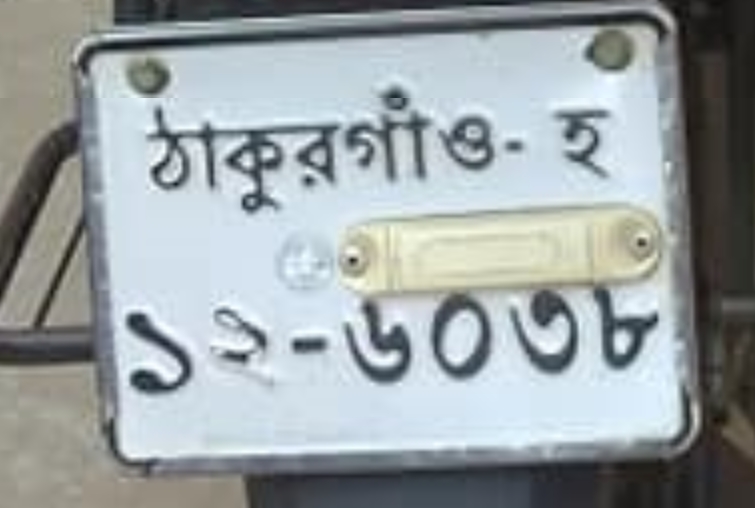 ঠাকুরগাঁও- হ
১২-৬০৩৮